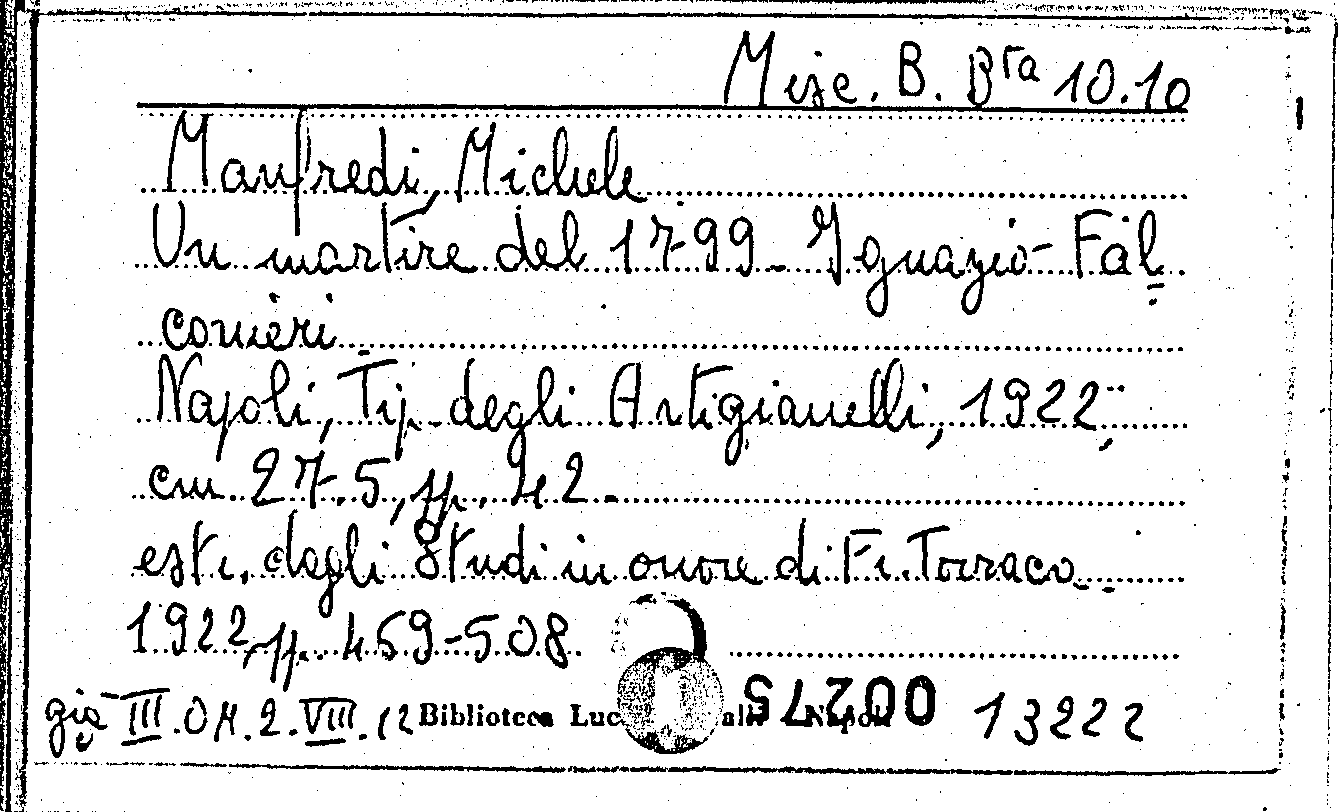 Misc. B. Bta 10.10
Manfredi, Michele
Un martire del 1799 - Ignazio Fal
conieri.
Napoli, Tip. degli Artigianelli, 1922,
cm 27.5, pp. 42.
estr. dagli Studi in onore di Fr. Torraca
1922, pp. 459-508.
già III.OH.2.VIII.12 Biblioteca Luc Napoli 00275 13222